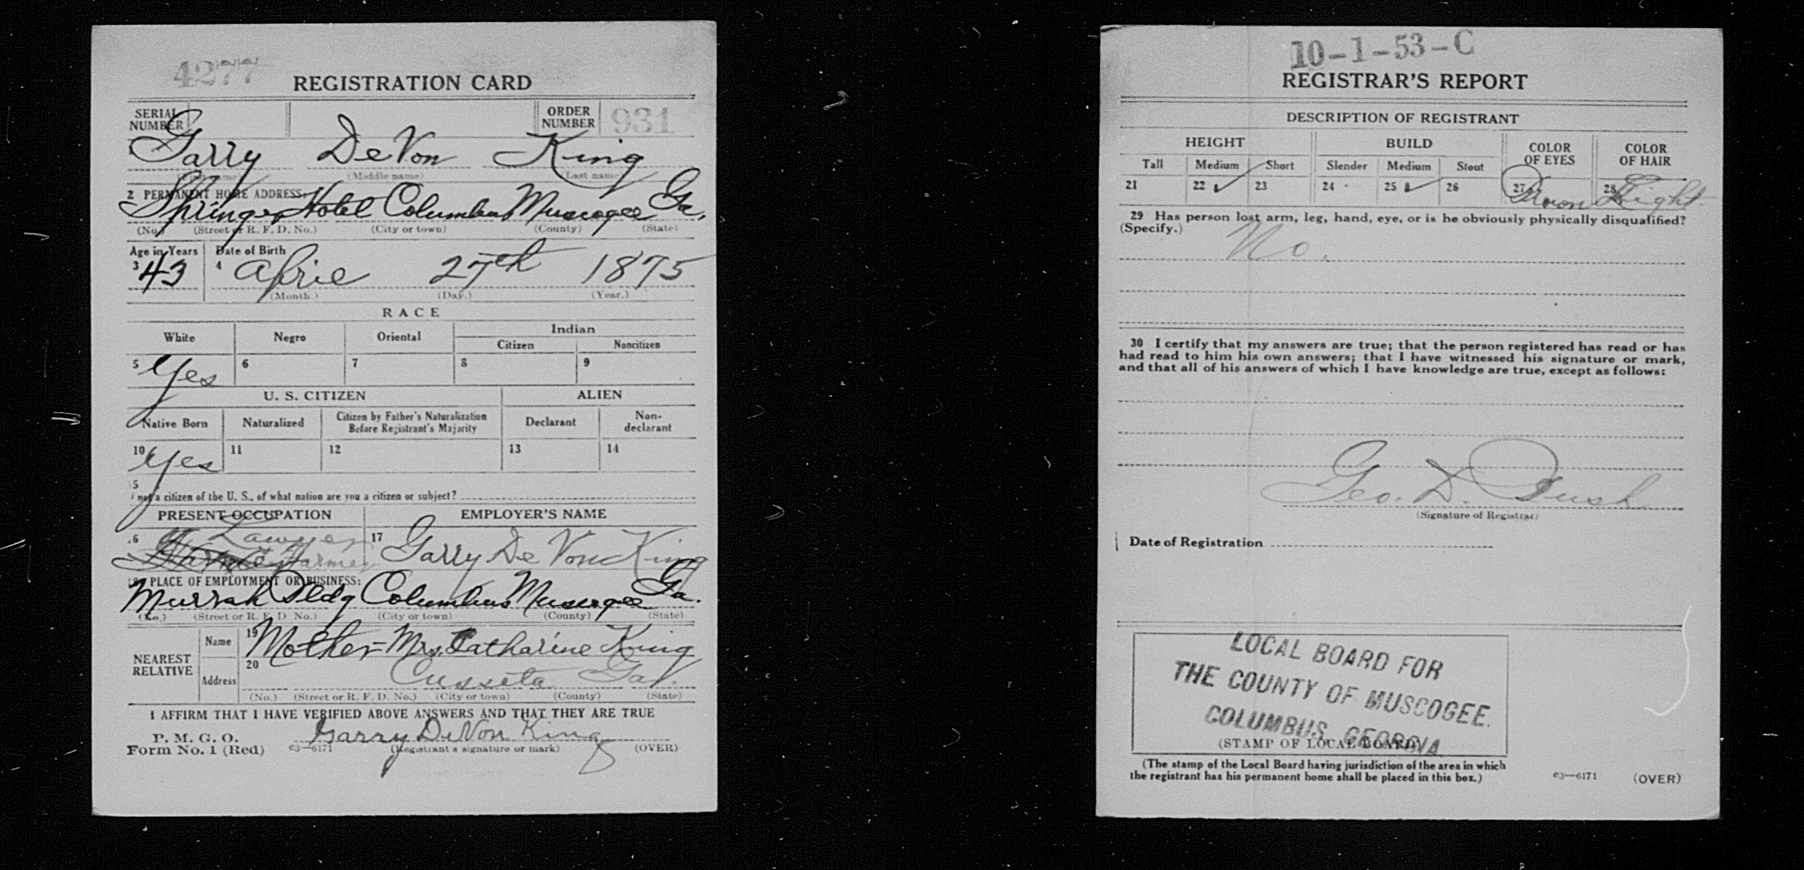 4277
REGISTRATION CARD
SERIAL NUMBER
ORDER NUMBER 931
Garry DeVon King
(Middle name) (Last name)
2 PERMANENT HOME ADDRESS:
Springer Hotel Columbus Muscogee Ga.
(No.) (Street or R. F. D. No.) (City or town) (County) (State)
Age in Years Date of Birth
3 43 4 April 27th 1875
(Month.) (Day.) (Year.)
RACE
White Negro Oriental Indian
Citizen Noncitizen
5 Yes 6 7 8 9
U. S. CITIZEN ALIEN
Native Born Naturalized Citizen by Father's Naturalization Before Registrant's Majority Declarant Non-declarant
10 Yes 11 12 13 14
15
If not a citizen of the U. S., of what nation are you a citizen or subject?
PRESENT OCCUPATION EMPLOYER'S NAME
16 Lawyer Farmer 17 Garry De Von King
18 PLACE OF EMPLOYMENT OR BUSINESS:
Murrah Bldg Columbus Muscogee Ga.
(No.) (Street or R. F. D. No.) (City or town) (County) (State)
NEAREST RELATIVE
Name 19 Mother - Mrs. Catharine King
Address 20 Cusseta Ga.
(No.) (Street or R. F. D. No.) (City or town) (County) (State)
I AFFIRM THAT I HAVE VERIFIED ABOVE ANSWERS AND THAT THEY ARE TRUE
P. M. G. O.
Form No. 1 (Red) c3—6171 Garry DeVon King
(Registrant's signature or mark) (OVER)
10-1-53-C
REGISTRAR'S REPORT
DESCRIPTION OF REGISTRANT
HEIGHT BUILD COLOR OF EYES COLOR OF HAIR
Tall Medium Short Slender Medium Stout
21 22 ✓ 23 24 25 ✓ 26 27 Brown 28 Light
29 Has person lost arm, leg, hand, eye, or is he obviously physically disqualified?
(Specify.) No.
30 I certify that my answers are true; that the person registered has read or has
had read to him his own answers; that I have witnessed his signature or mark,
and that all of his answers of which I have knowledge are true, except as follows:
Geo. D.
(Signature of Registrar)
Date of Registration
LOCAL BOARD FOR
THE COUNTY OF MUSCOGEE.
COLUMBUS, GEORGIA
(STAMP OF LOCAL BOARD)
(The stamp of the Local Board having jurisdiction of the area in which
the registrant has his permanent home shall be placed in this box.)
c3—6171 (OVER)